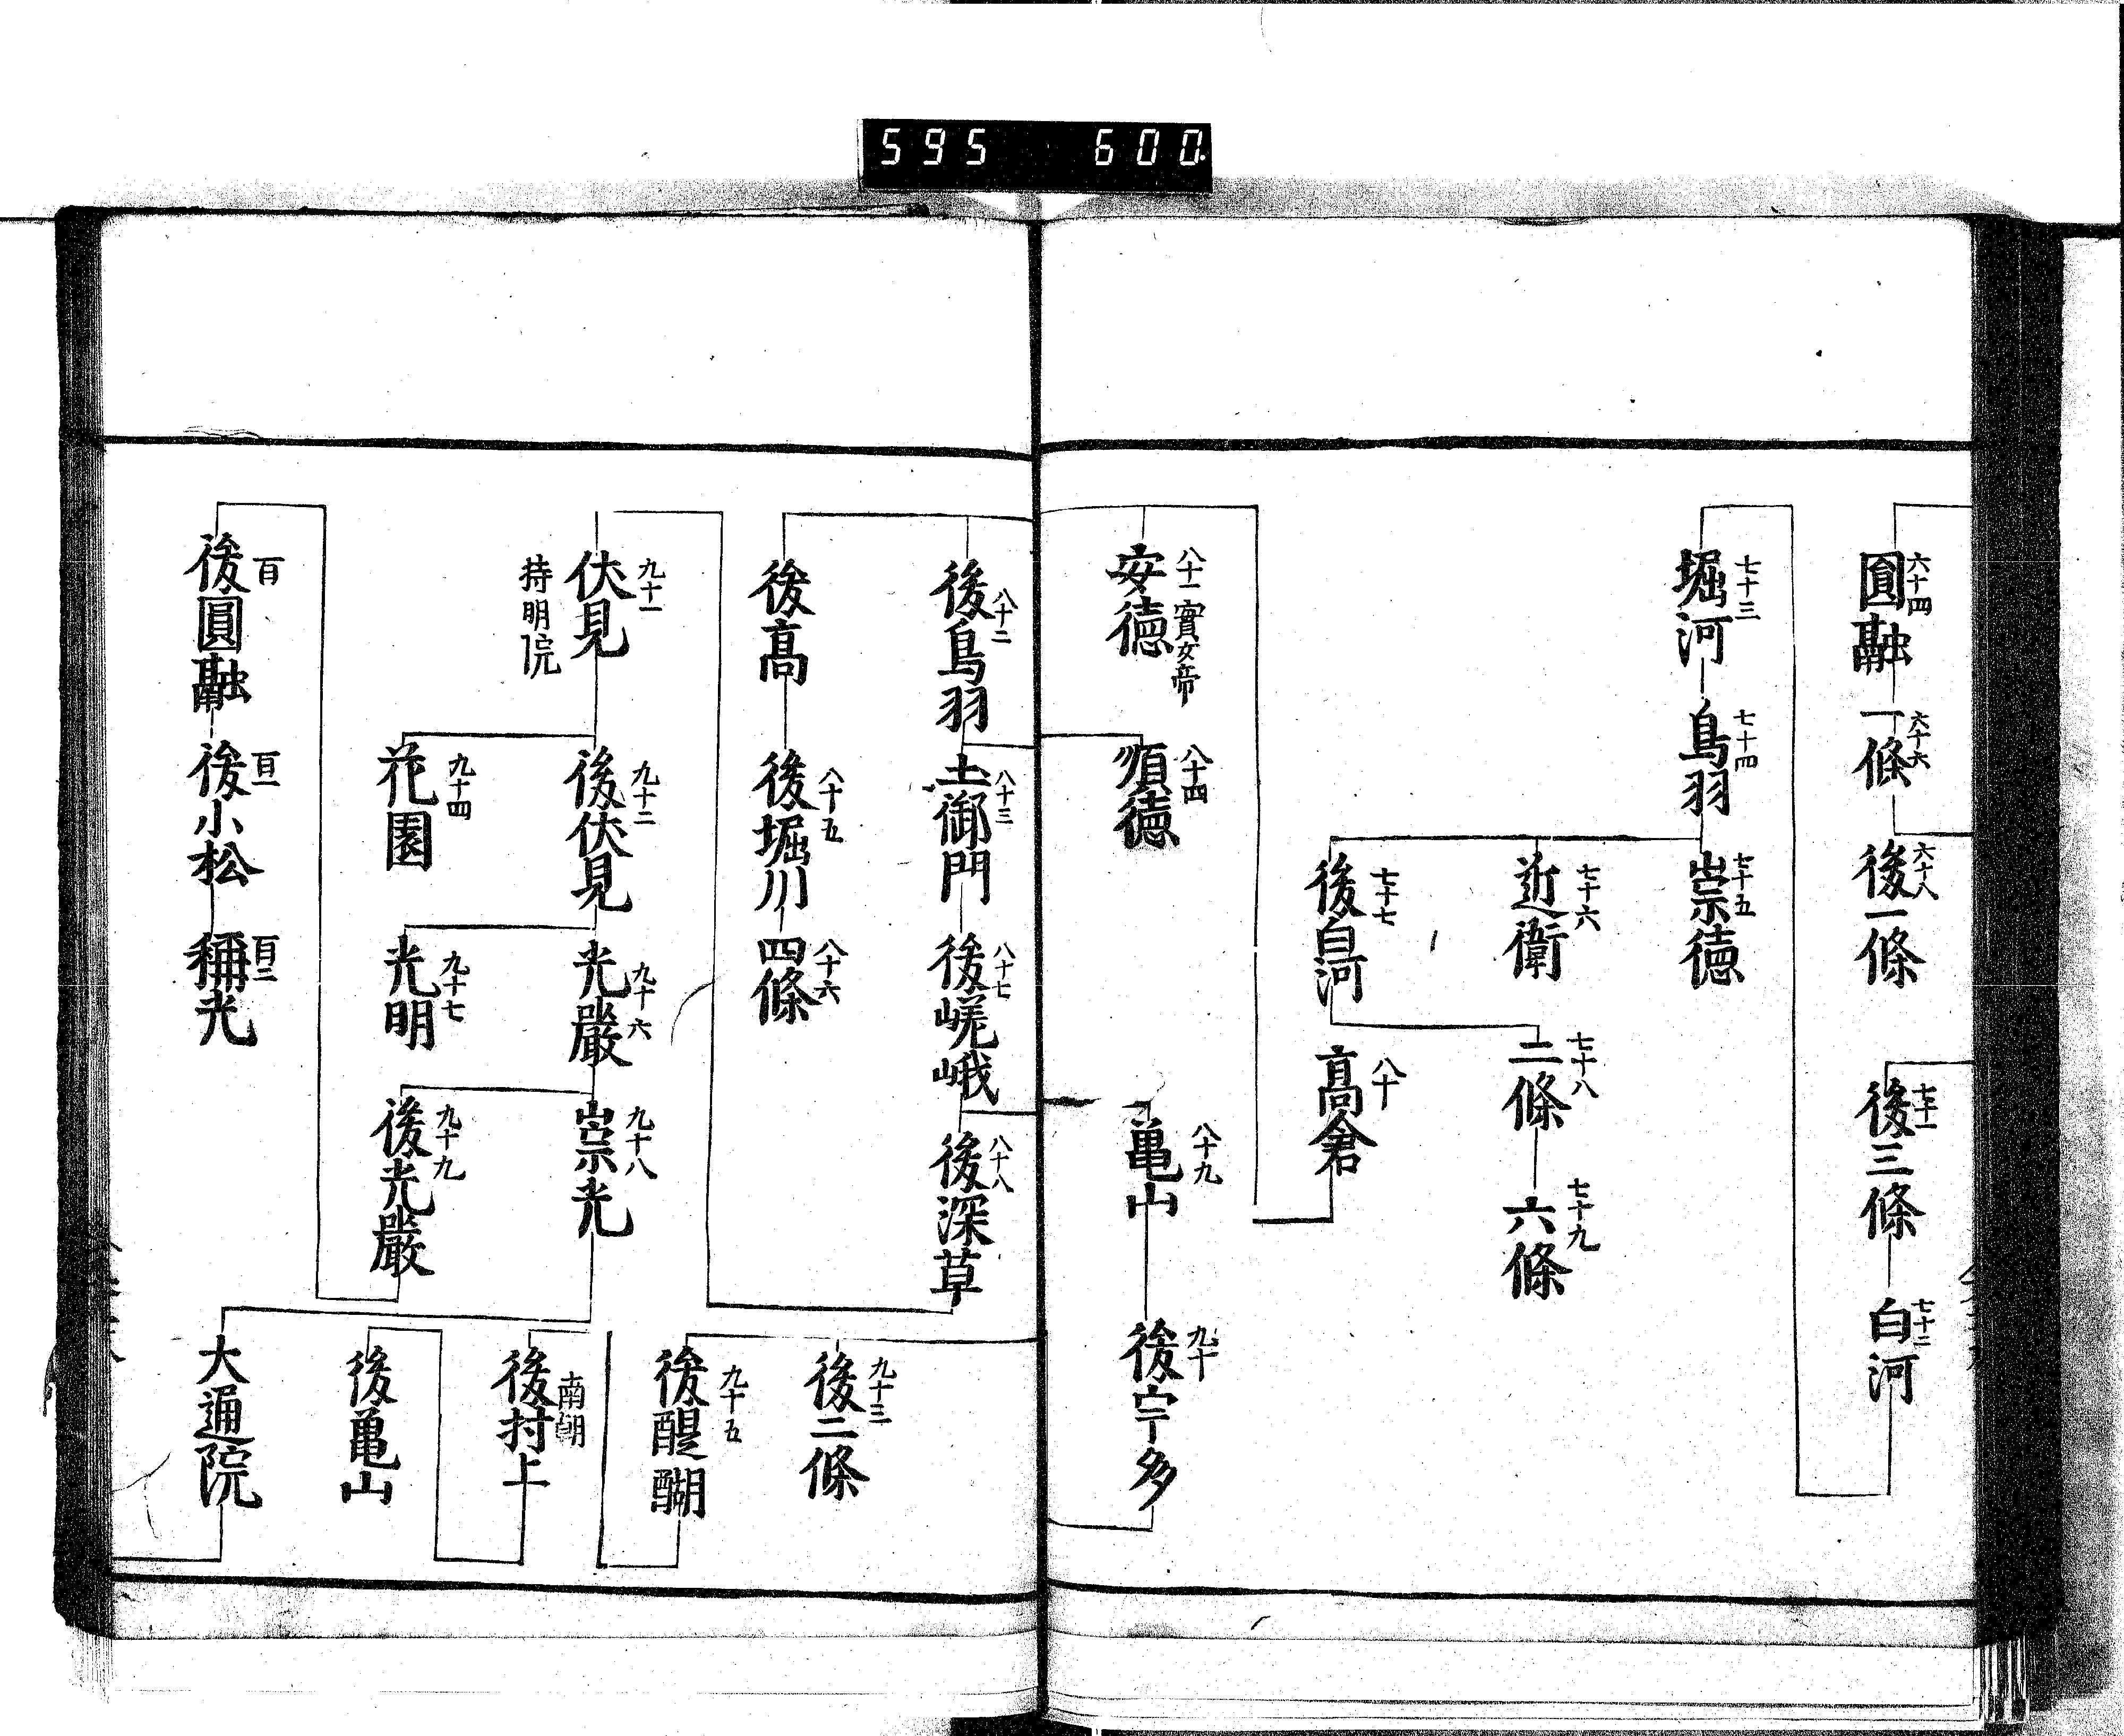 595 600
六十四 圓融
六十六 一條
六十八 後一條
七十一 後三條
七十二 白河
七十三 堀河
七十四 鳥羽
七十五 崇徳
七十六 近衛
七十八 二條
七十九 六條
七十七 後白河
八十 高倉
八十一 實女帝 安徳
八十四 順徳
八十九 亀山
九十 後宇多
八十二 後鳥羽
八十三 土御門
八十七 後嵯峨
八十八 後深草
後高
八十五 後堀川
八十六 四條
九十三 後二條
九十五 後醍醐
九十一 伏見
持明院
九十二 後伏見
九十六 光嚴
九十八 崇光
南朝 後村上
九十四 花園
九十七 光明
九十九 後光嚴
後亀山
百 後圓融
百一 後小松
百二 稱光
大通院